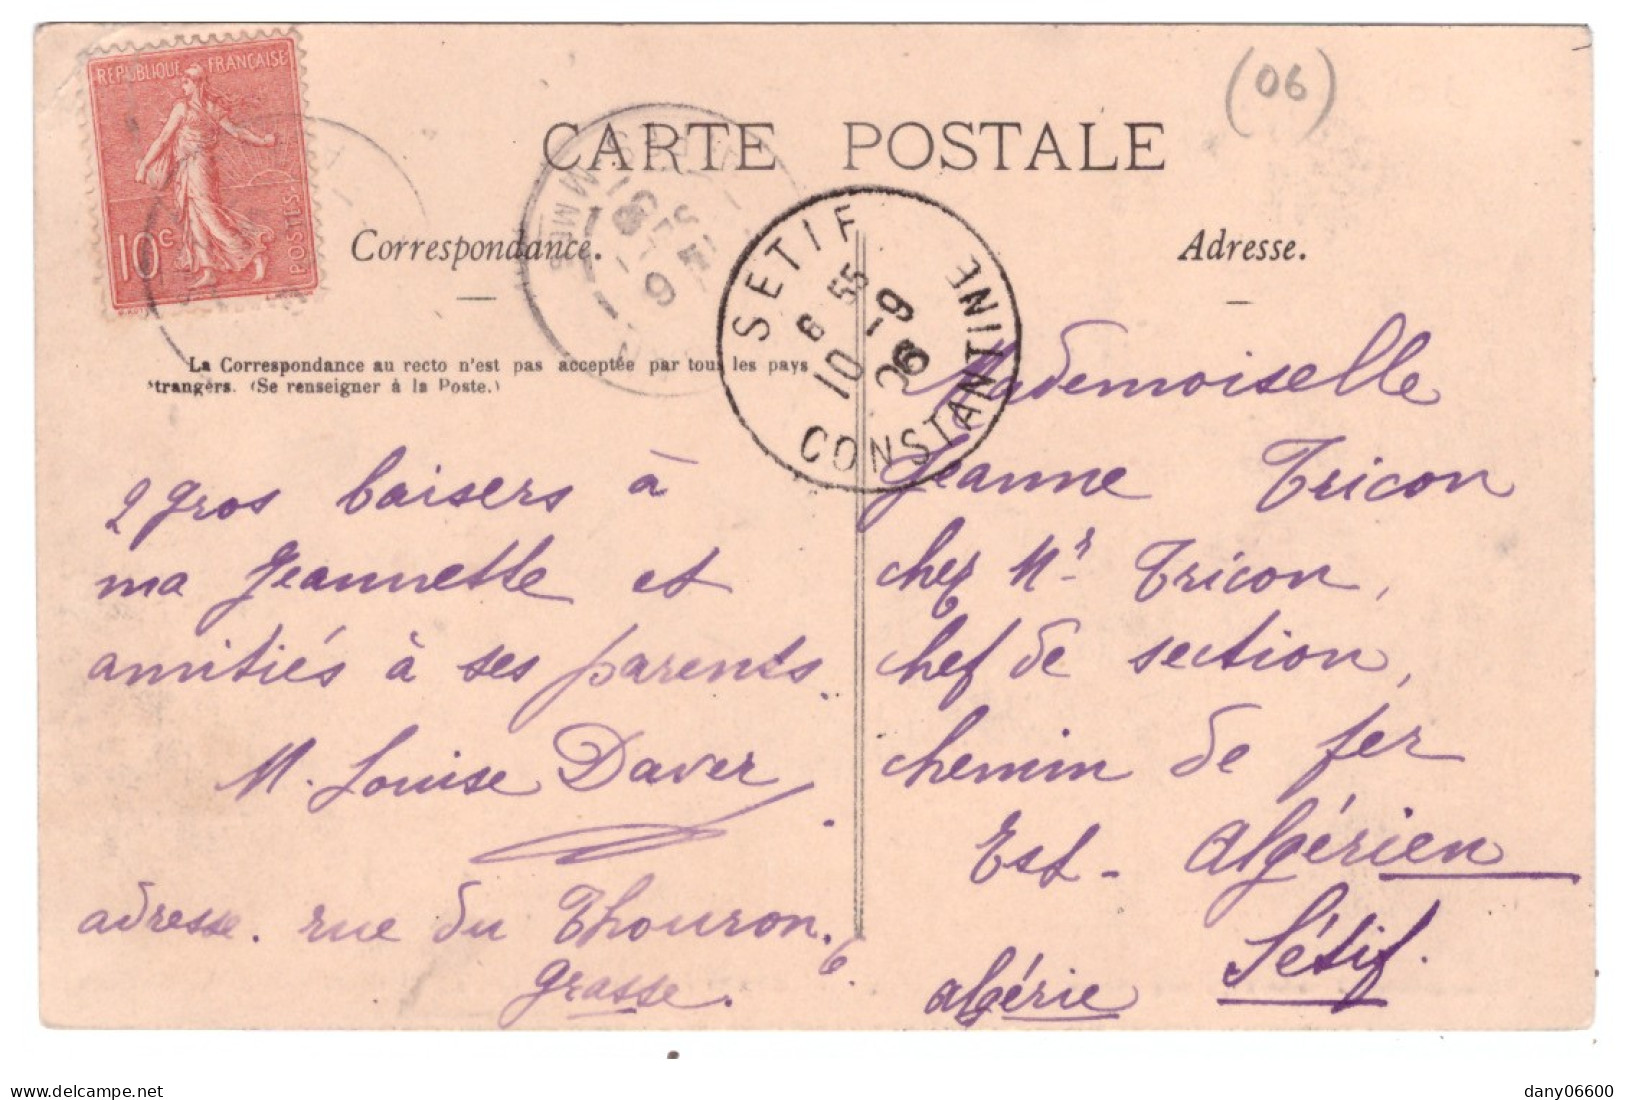 (06)
RÉPUBLIQUE FRANÇAISE
10c
POSTES
CARTE POSTALE
Correspondance.
La Correspondance au recto n'est pas acceptée par tous les pays
étrangers. (Se renseigner à la Poste.)
2 gros baisers à
ma Jeannette et
amitiés à ses parents.
M. Louise Daver.
adresse. rue du Thouron. 6.
grasse.
SETIF CONSTANTINE
6 55
10 - 9
06
Adresse.
Mademoiselle
Jeanne Tricon
chez Mr. Tricon,
chef de section,
chemin de fer
Est - algérien
Sétif.
algérie
delcampe.net
dany06600